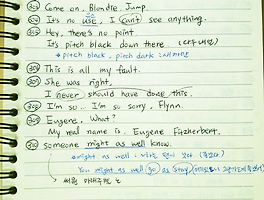 303 Come on, Blondie. Jump.
304 It's no use, I can't see anything.
305 Hey, there's no point.
It's pitch black down there.
* pitch black, pitch dark :
306 This is all my fault.
307 She was right,
I never should have done this.
308 I'm so... I'm so sorry, Flynn.
309 Eugene. What?
My real name is, Eugene Fitzherbert.
310 someone might as well know.
* might as well :
You might as well go as stay